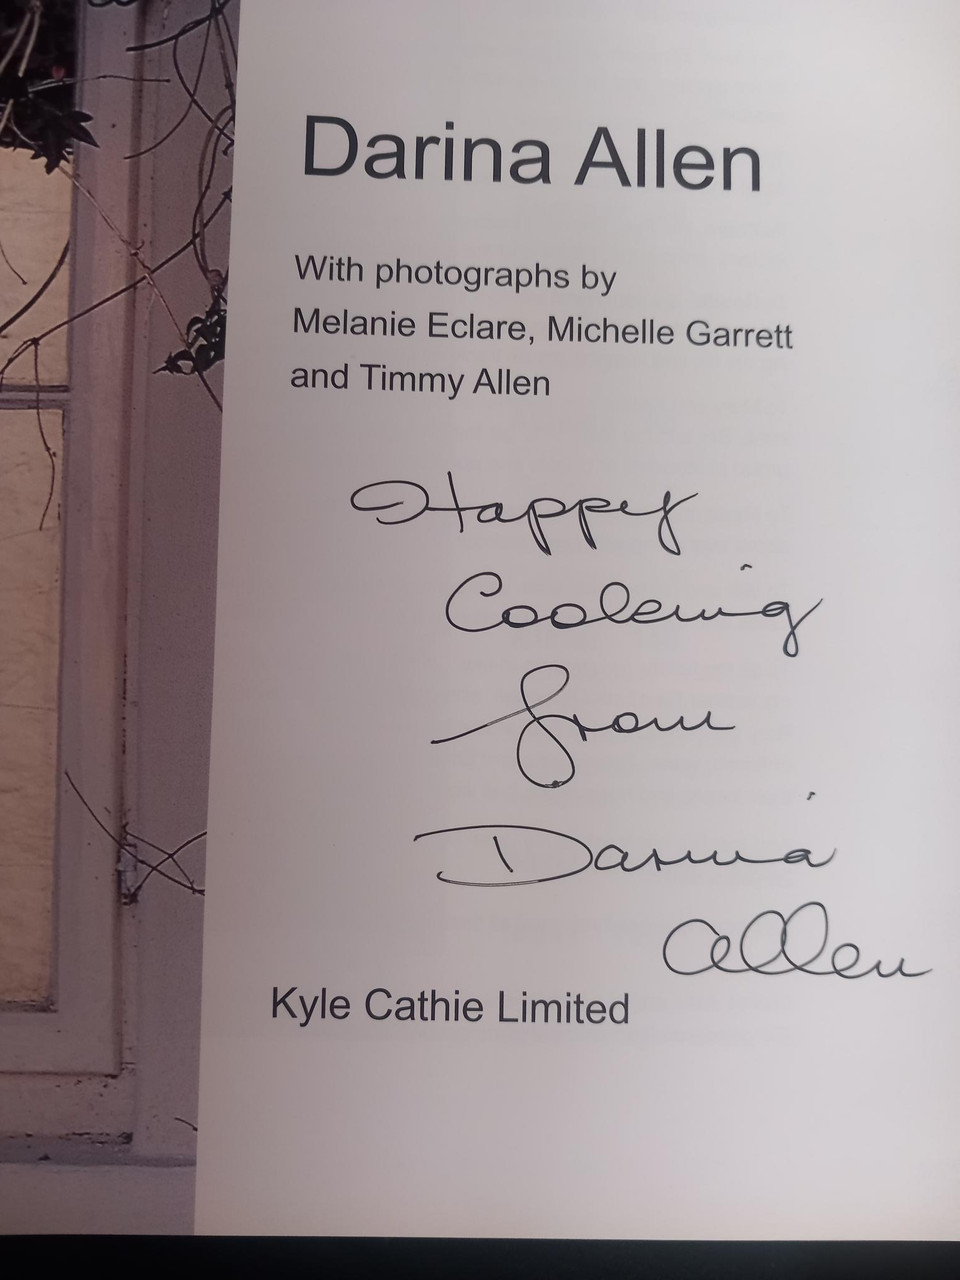 Darina Allen
With photographs by
Melanie Eclare, Michelle Garrett
and Timmy Allen
Happy
Cooking
from
Darina
Allen
Kyle Cathie Limited